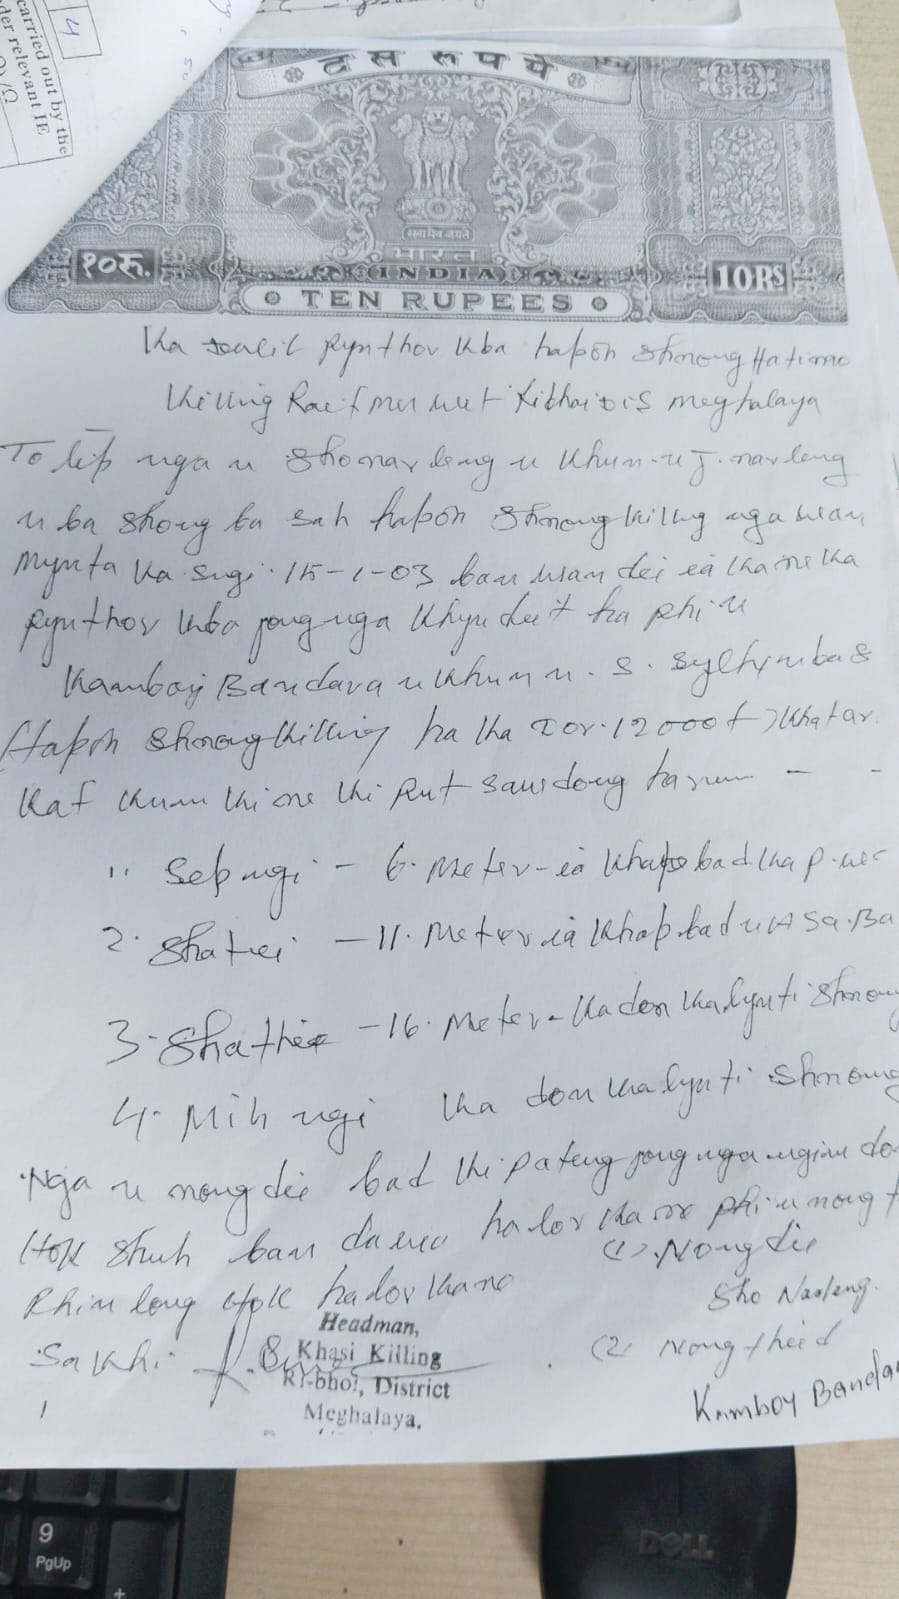 4
carried out by the
der relevant IE
दस रुपये
सत्यमेव जयते
भारत
INDIA
१०रु.
10RS
TEN RUPEES
Ka dulil Pynthor Kba hapoh Shnong Hatimo
Killing Raf Mer wet Ribhoi Dis Meghalaya
To lip nga u Sho nar leng u Khun u J. nar leng
u ba Shong ba sah hapoh Shnong Killing nga wan
Mynta Ka Sngi 15-1-03 ban wan dei ia Kane Ka
Pynthor Kba jong nga Khyndeit ha phi u
Kamboy Bandara u Khun u. S. Syltymba &
Hapoh Shnong Killing ha Ka Dor. 12000/-) Khatar
Kat Kum Ki ne Ki Put Sawdong harum - -
1. Sepngi - 6. Meter-ia Khap bad Ka p. wer
2. Shatei - 11. Meter ia Khap bad u A Sa. Ba
3. Shathie - 16. Meter - Ka don Ka lynti Shnong
4. Mih ngi Ka don Ka lynti Shnong
Nga u nong die bad Ki pateng jong nga ngim do
Hok Shuh ban hador Kane phi u nong t
Phin long Hok hador Kane
(1). Nong die
Sho Narleng.
Sakhi.
Headman,
Khasi Killing
Ri-bhoi, District
Meghalaya.
(2) Nong thied
Kamboy Banda
1
9
PgUp
+
DELL